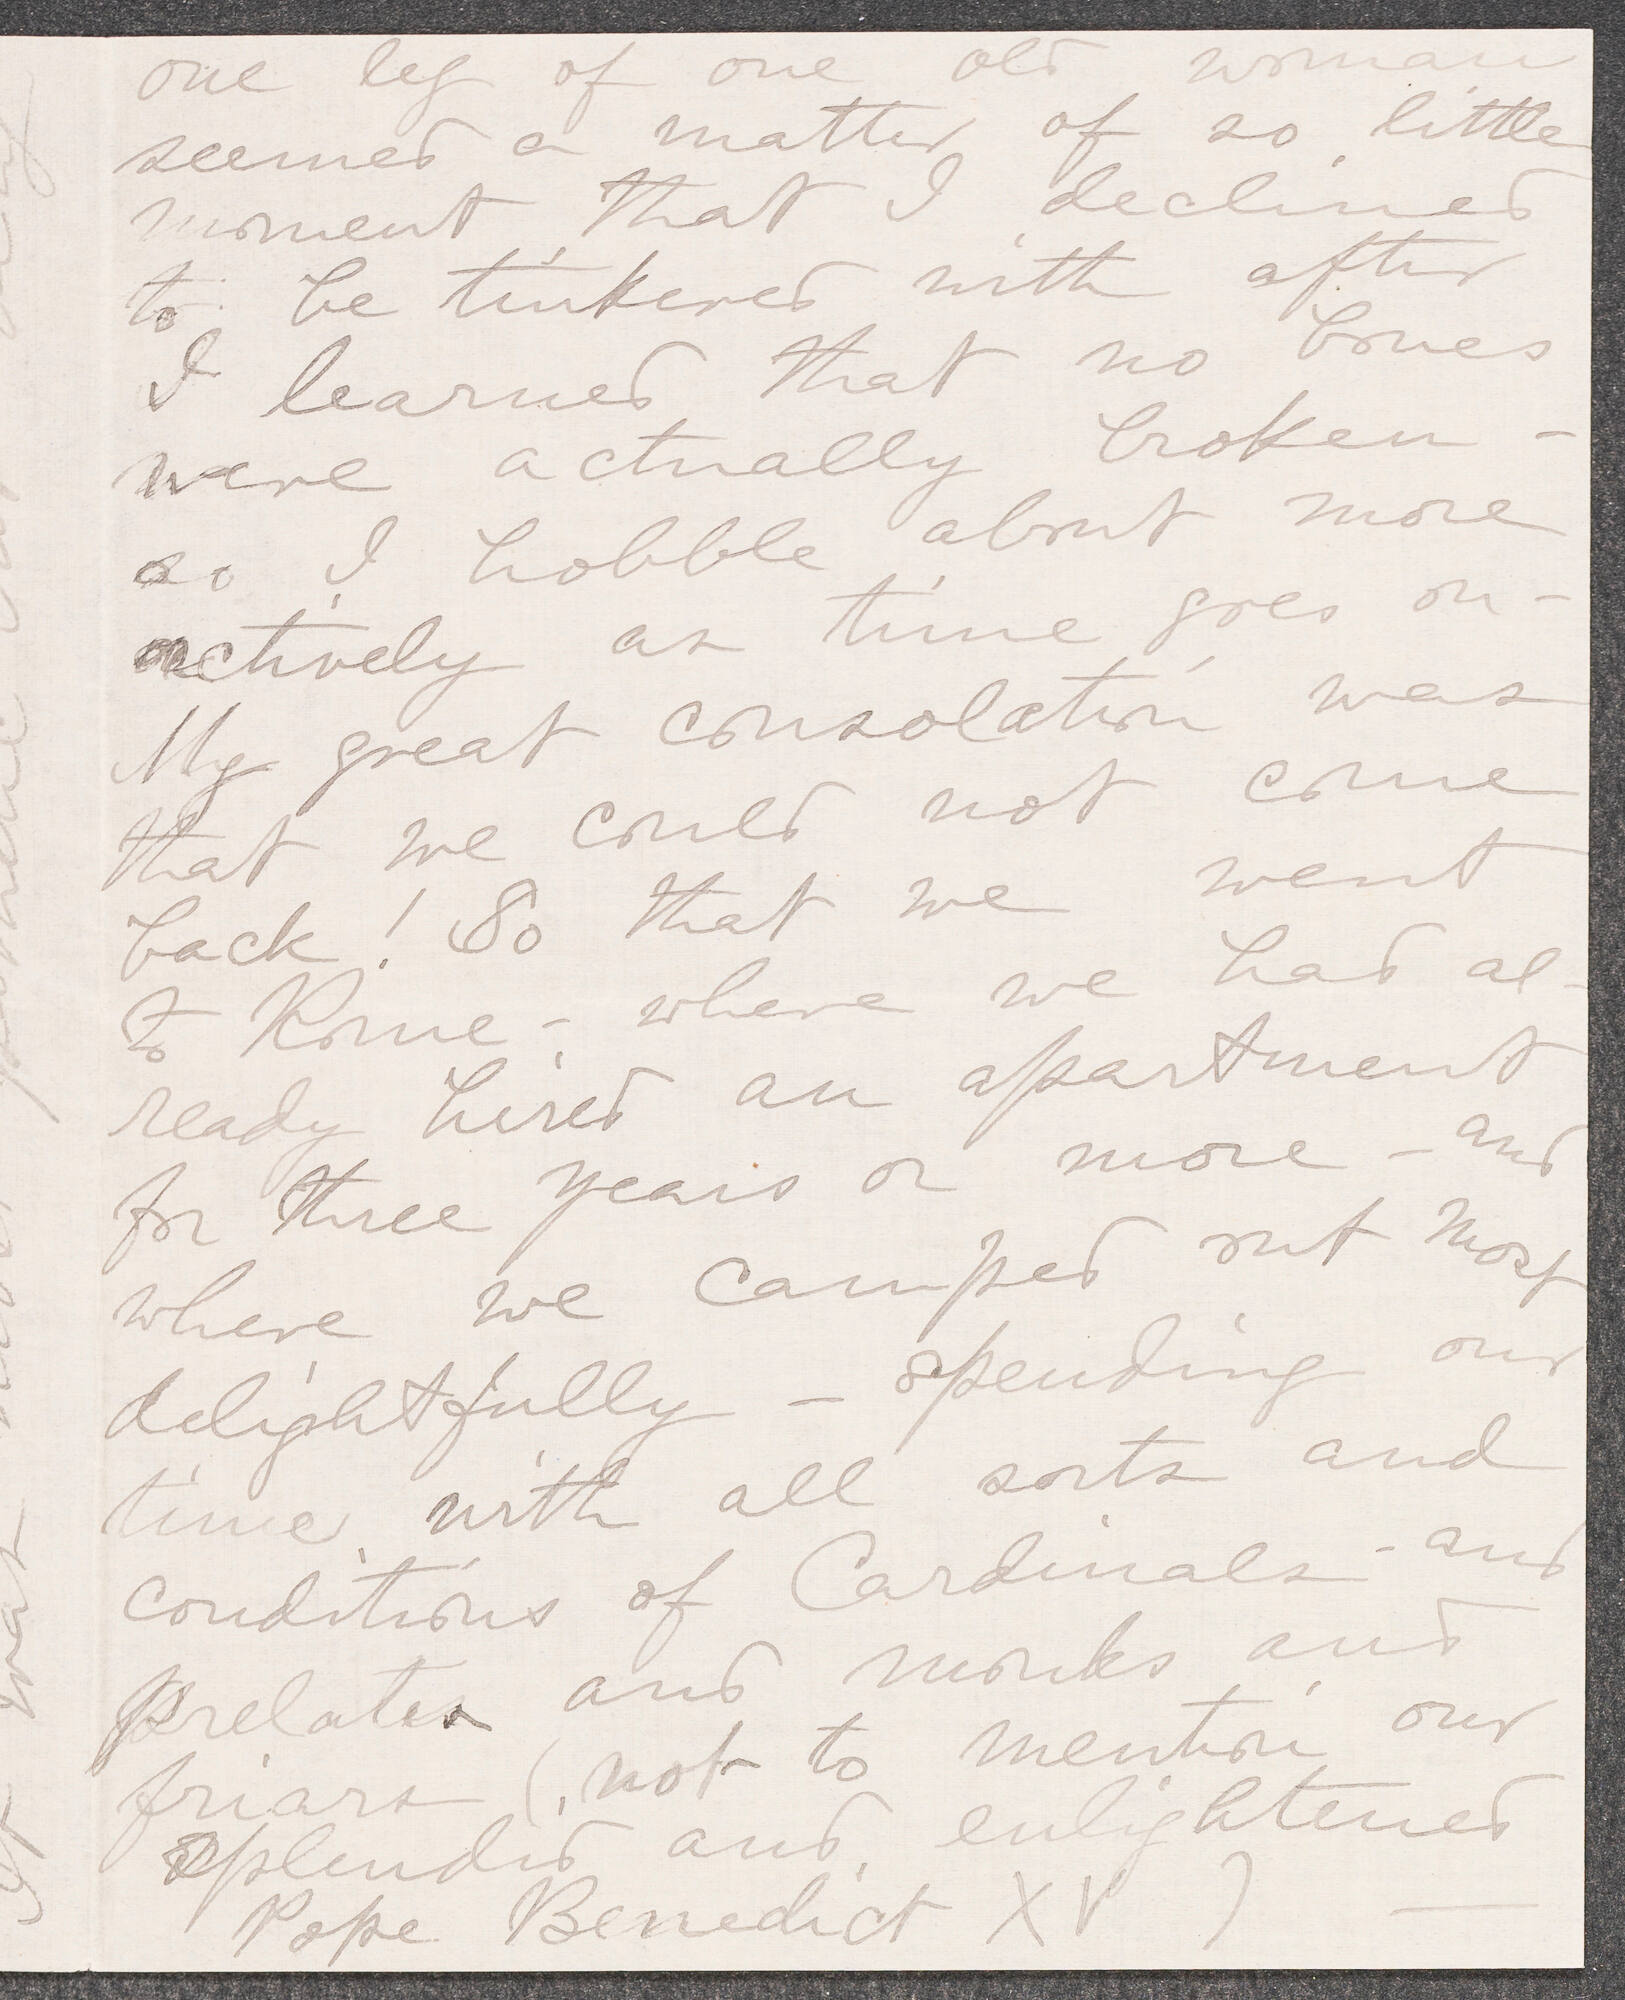 one leg of one old woman
seemed a matter of so little
moment that I declined
to be tinkered with after
I learned that no bones
were actually broken -
so I hobble about more
actively as time goes on -
My great consolation was
that we could not come
back! So that we went
to Rome - where we had al-
ready hired an apartment
for three years or more - and
where we camped out most
delightfully - spending our
time with all sorts and
conditions of Cardinals - and
prelates and monks and
friars (not to mention our
splendid and enlightened
Pope Benedict XV) —